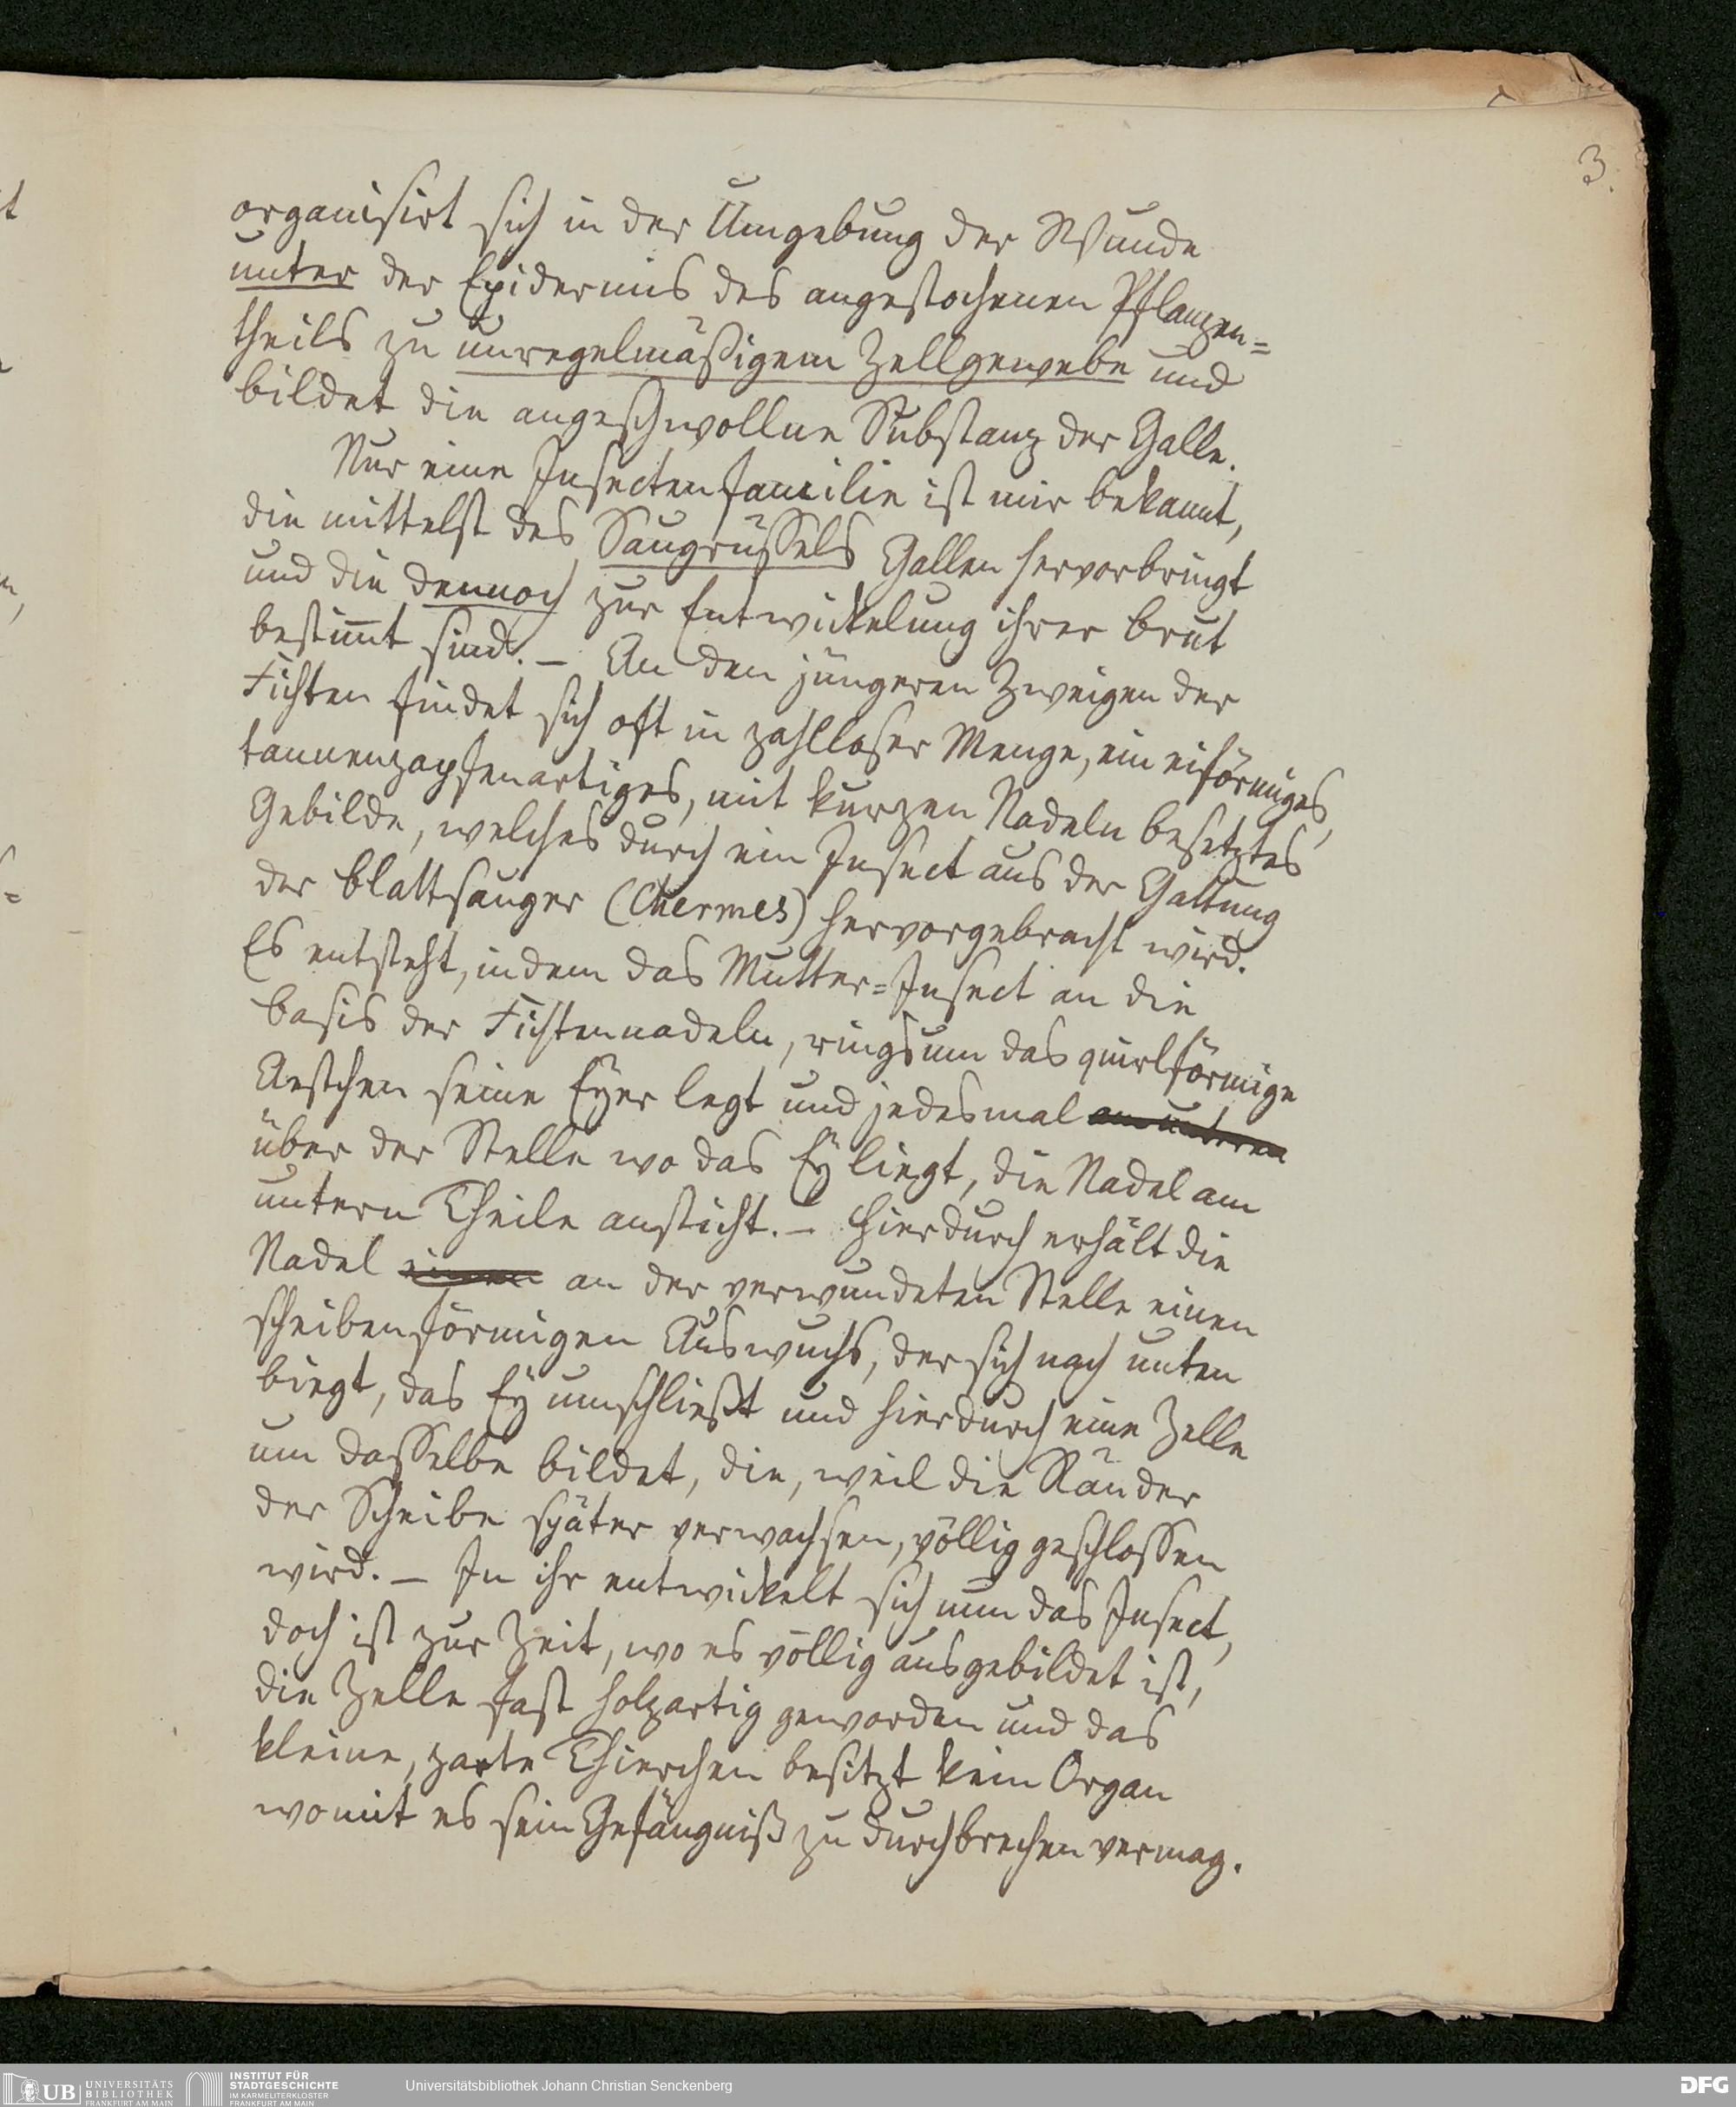 3.
organisirt sich in der Umgebung der Wunde
unter der Epidermis des angestochenen Pflanzen=
theils zu unregelmäßigem Zellgewebe und
bildet die angeschwollne Substanz der Galle.
Nur eine Insectenfamilie ist mir bekannt,
die mittelst des Saugrüssels Gallen hervorbringt
und die dennoch zur Entwickelung ihrer Brut
bestim̅t sind. – An den jüngeren Zweigen der
Fichten findet sich oft in zahlloser Menge, ein eiförmiges,
tannenzapfenartiges, mit kurzen Nadeln besetztes
Gebilde, welches durch ein Insect aus der Gattung
der Blattsauger (Chermes) hervorgebracht wird.
Es entsteht, indem das Mutter=Insect an die
Basis der Fichtennadeln, ringsum das quirlförmige
Aestchen seine Eyer legt und jedesmal am unteren
über der Stelle wo das Ey liegt, die Nadel am
untern Theile ansticht. – Hierdurch erhält die
Nadel einen an der verwundeten Stelle einen
scheibenförmigen Auswuchs, der sich nach unten
biegt, das Ey umschließt und hierdurch eine Zelle
um dasselbe bildet, die, weil die Ränder
der Scheibe später verwachsen, völlig geschlossen
wird. – In ihr entwickelt sich nun das Insect,
doch ist zur Zeit, wo es völlig ausgebildet ist,
die Zelle fast holzartig geworden und das
kleine, zarte Thierchen besitzt kein Organ
womit es sein Gefängniß zu durchbrechen vermag.
UB UNIVERSITÄTS BIBLIOTHEK FRANKFURT AM MAIN
INSTITUT FÜR STADTGESCHICHTE IM KARMELITERKLOSTER FRANKFURT AM MAIN
Universitätsbibliothek Johann Christian Senckenberg
DFG